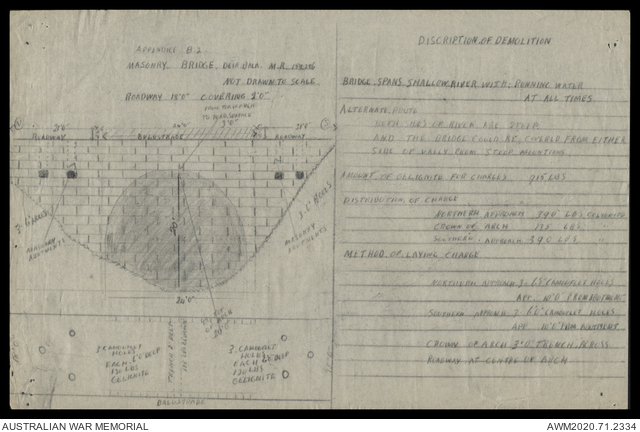 APPENDIX B.2
MASONRY BRIDGE, DEIR BHA. M.R.
NOT DRAWN TO SCALE
ROADWAY 18'0" COVERING 2'0"
ROADWAY
BALUSTRADE
ROADWAY
MASONRY
ABUTMENTS
MASONRY
ABUTMENTS
24'0"
3 CAMOUFLET
HOLES
EACH 6'6" DEEP
130 LBS
GELIGNITE
3. CAMOUFLET
HOLES
EACH 6'6" DEEP
130 LBS
GELIGNITE
BALUSTRADE
DISCRIPTION OF DEMOLITION
BRIDGE SPANS SHALLOW RIVER WITH RUNNING WATER
AT ALL TIMES
ALTERNATE ROUTE
BOTH SIDES OF RIVER ARE STEEP
AND THE BRIDGE COULD BE COVERED FROM EITHER
SIDE OF VALLY FROM STEEP MOUNTING
AMOUNT OF GELIGNITE FOR CHARGES 915 LBS
DISTRIBUTION OF CHARGE
NORTHERN APPROACH 390 LBS. GELIGNITE
CROWN OF ARCH 135 LBS "
SOUTHERN APPROACH 390 LBS "
METHOD OF LAYING CHARGE
NORTHERN APPROACH 3. 6'6" CAMOUFLET HOLES
APP. 10'0" FROM ABUTMENT
SOUTHERN APPROACH 3 6'6" CAMOUFLET HOLES
APP 10'0" FROM ABUTMENT
CROWN OF ARCH 3'0" TRENCH ACROSS
ROADWAY AT CENTRE OF ARCH
AUSTRALIAN WAR MEMORIAL
AWM2020.71.2334